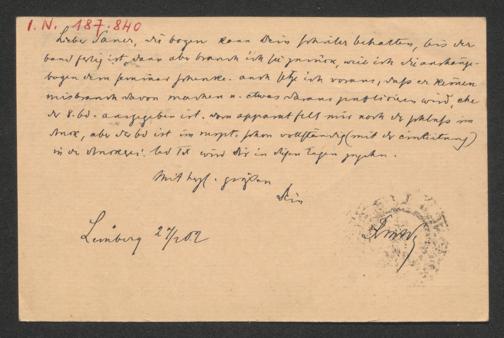 I. N. 187.840
Lieber Sauer, die bogen kann Dein schüler behalten, bis der
band fertig ist, dann aber brauch ich sie zurück, weil ich die aushänge-
bogen dem seminar schenke. auch setze ich voraus, daß er keinen
misbrauch davon machen u. etwas daraus publicieren wird, ehe
der 8. bd. ausgegeben ist. vom apparat felt mir noch der schluß im
druck, aber der bd ist im mspt. schon vollständig (mit der einleitung)
in der druckerei. wird Dir in diesen tagen zugehn.
Mit herzl. grüßen
Dein
Lemberg 2